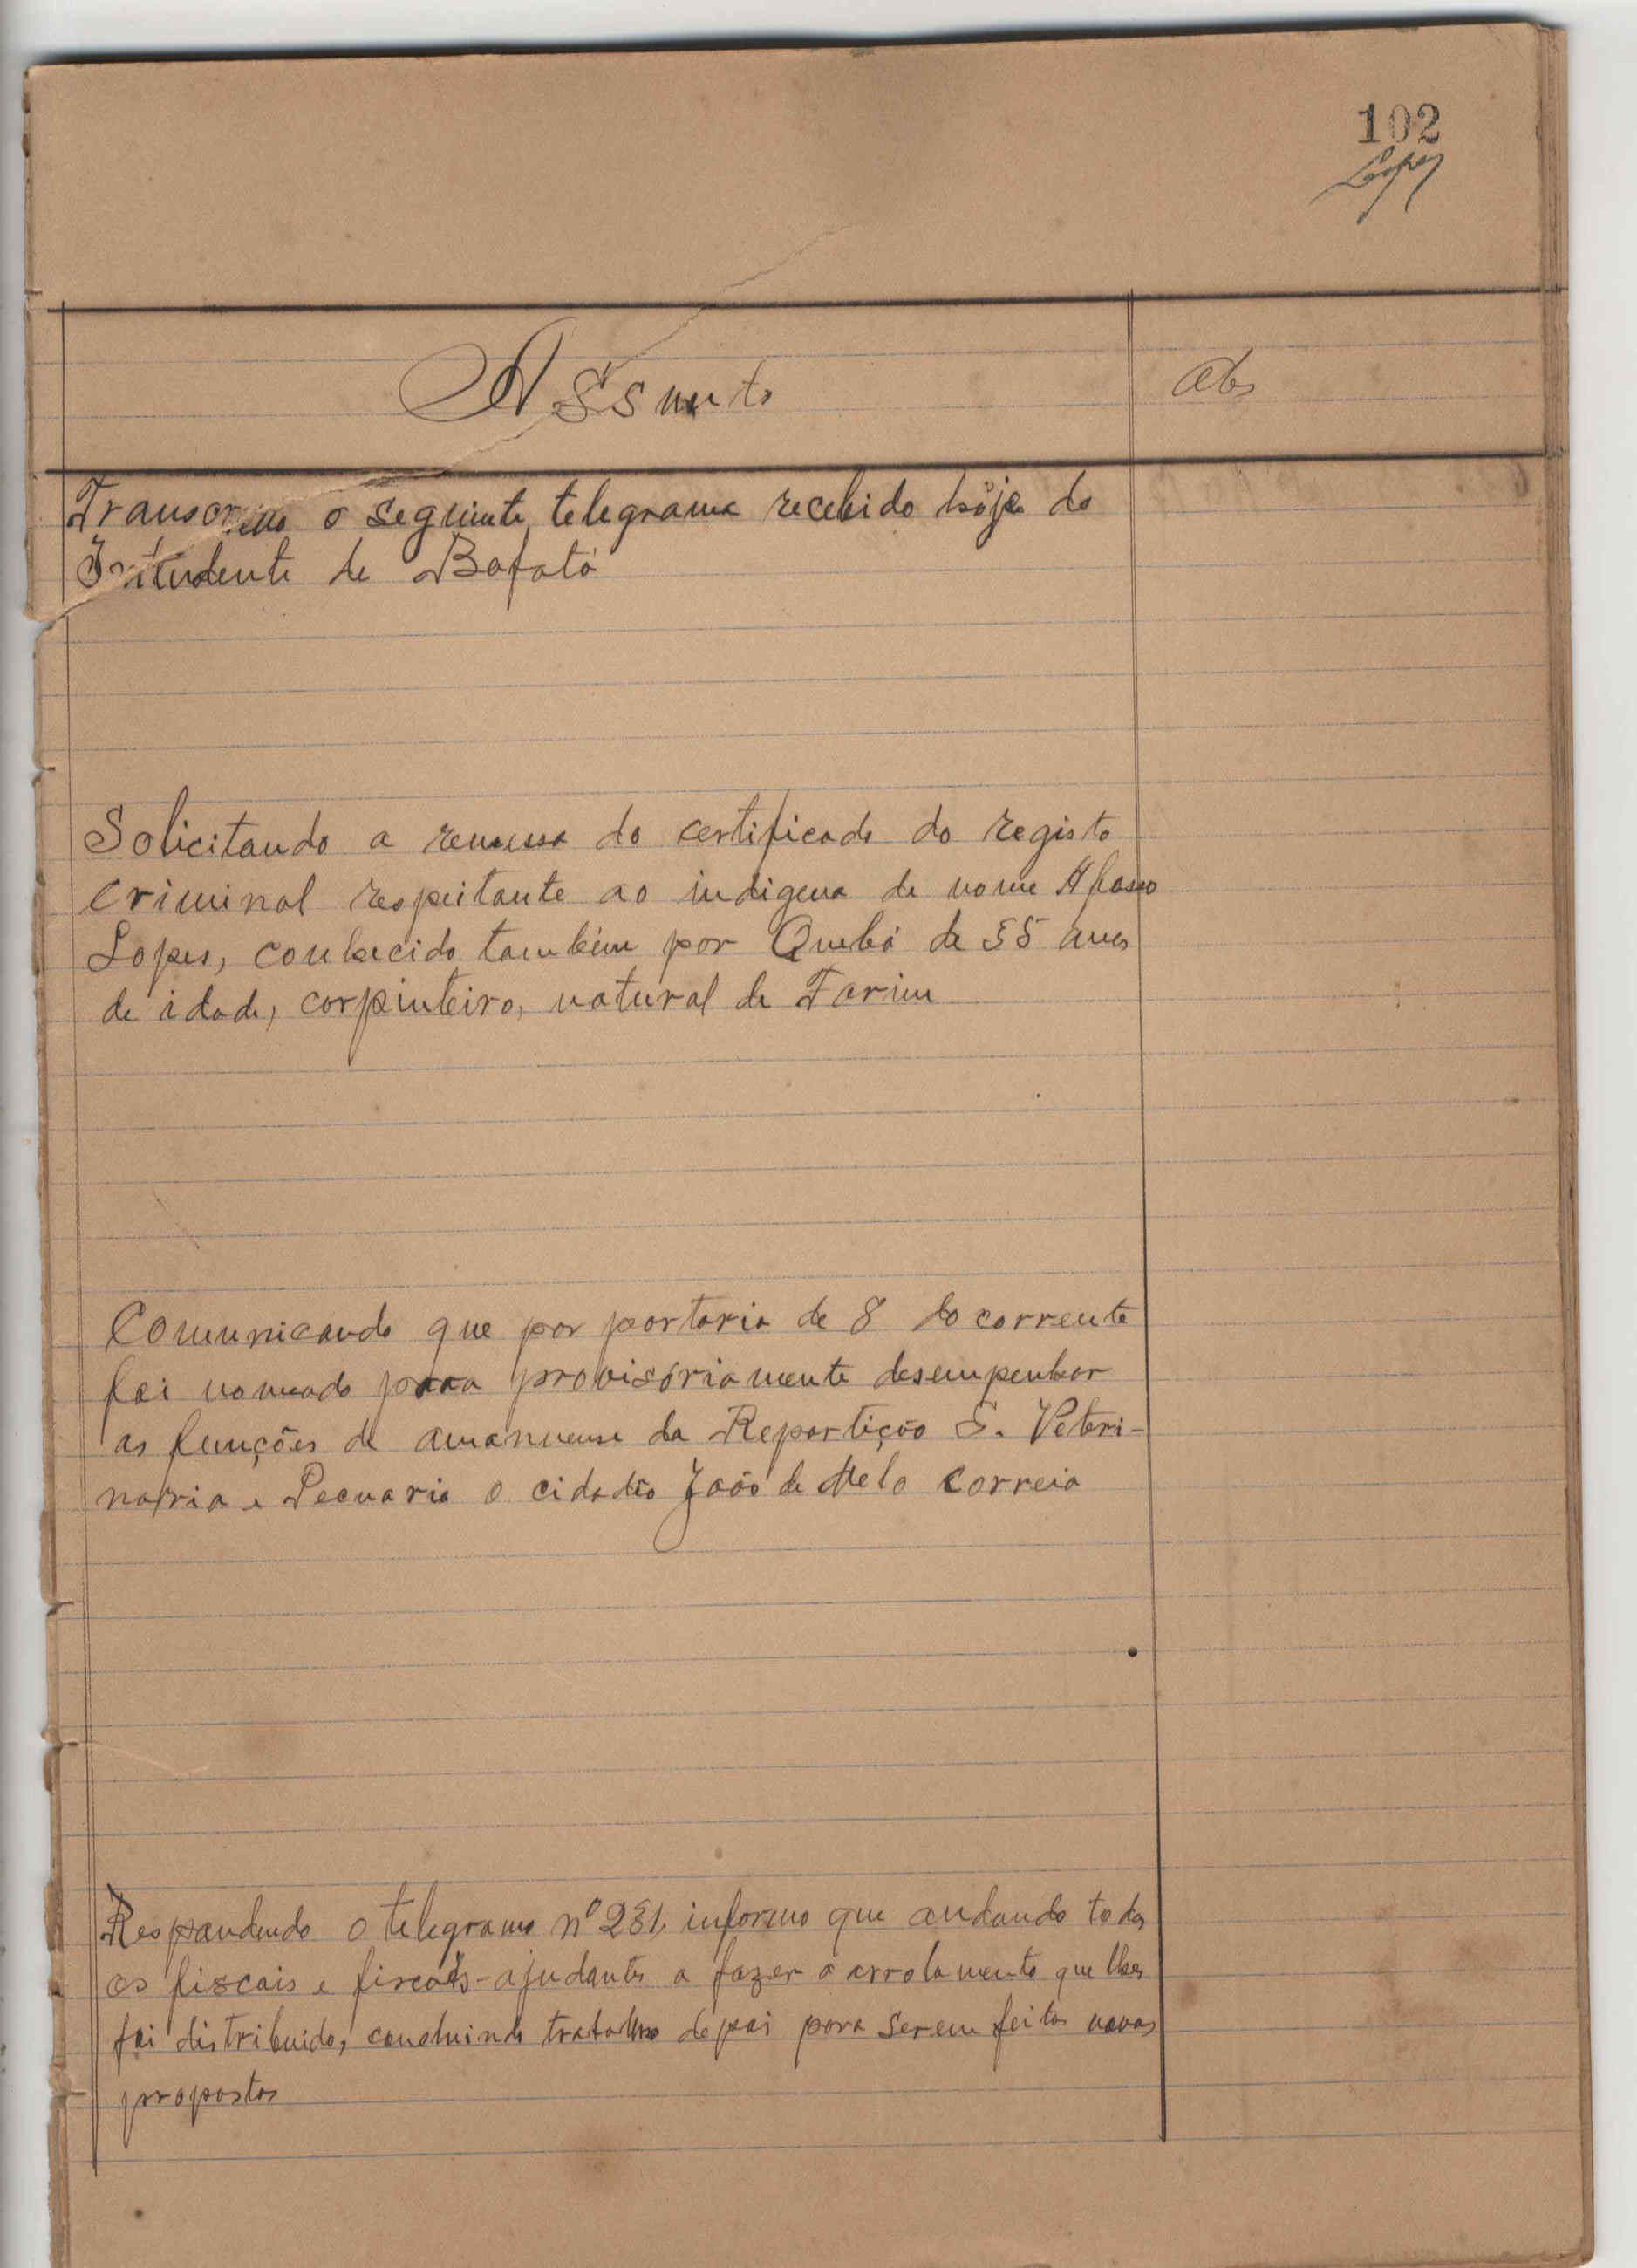 102
Lopes
Assunto
Obs
Transcrevo o seguinte telegrama recebido hoje do
Intendente de Bafatá
Solicitando a remessa do certificado do registo
criminal respeitante ao indigena de nome Afonso
Lopes, conhecido também por Quebá de 55 anos
de idade, carpinteiro, natural de Farim
Comunicando que por portaria de 8 do corrente
foi nomeado para provisóriamente desempenhar
as funções de amanuense da Repartição S. Veteri-
naria e Pecuaria o cidadão João de Melo Correia
Respondendo o telegrama nº 231, informo que andando todos
os fiscais e fiscais-ajudantes a fazer o arrolamento que lhes
foi distribuido, concluindo trabalho depois para serem feitas novas
propostas